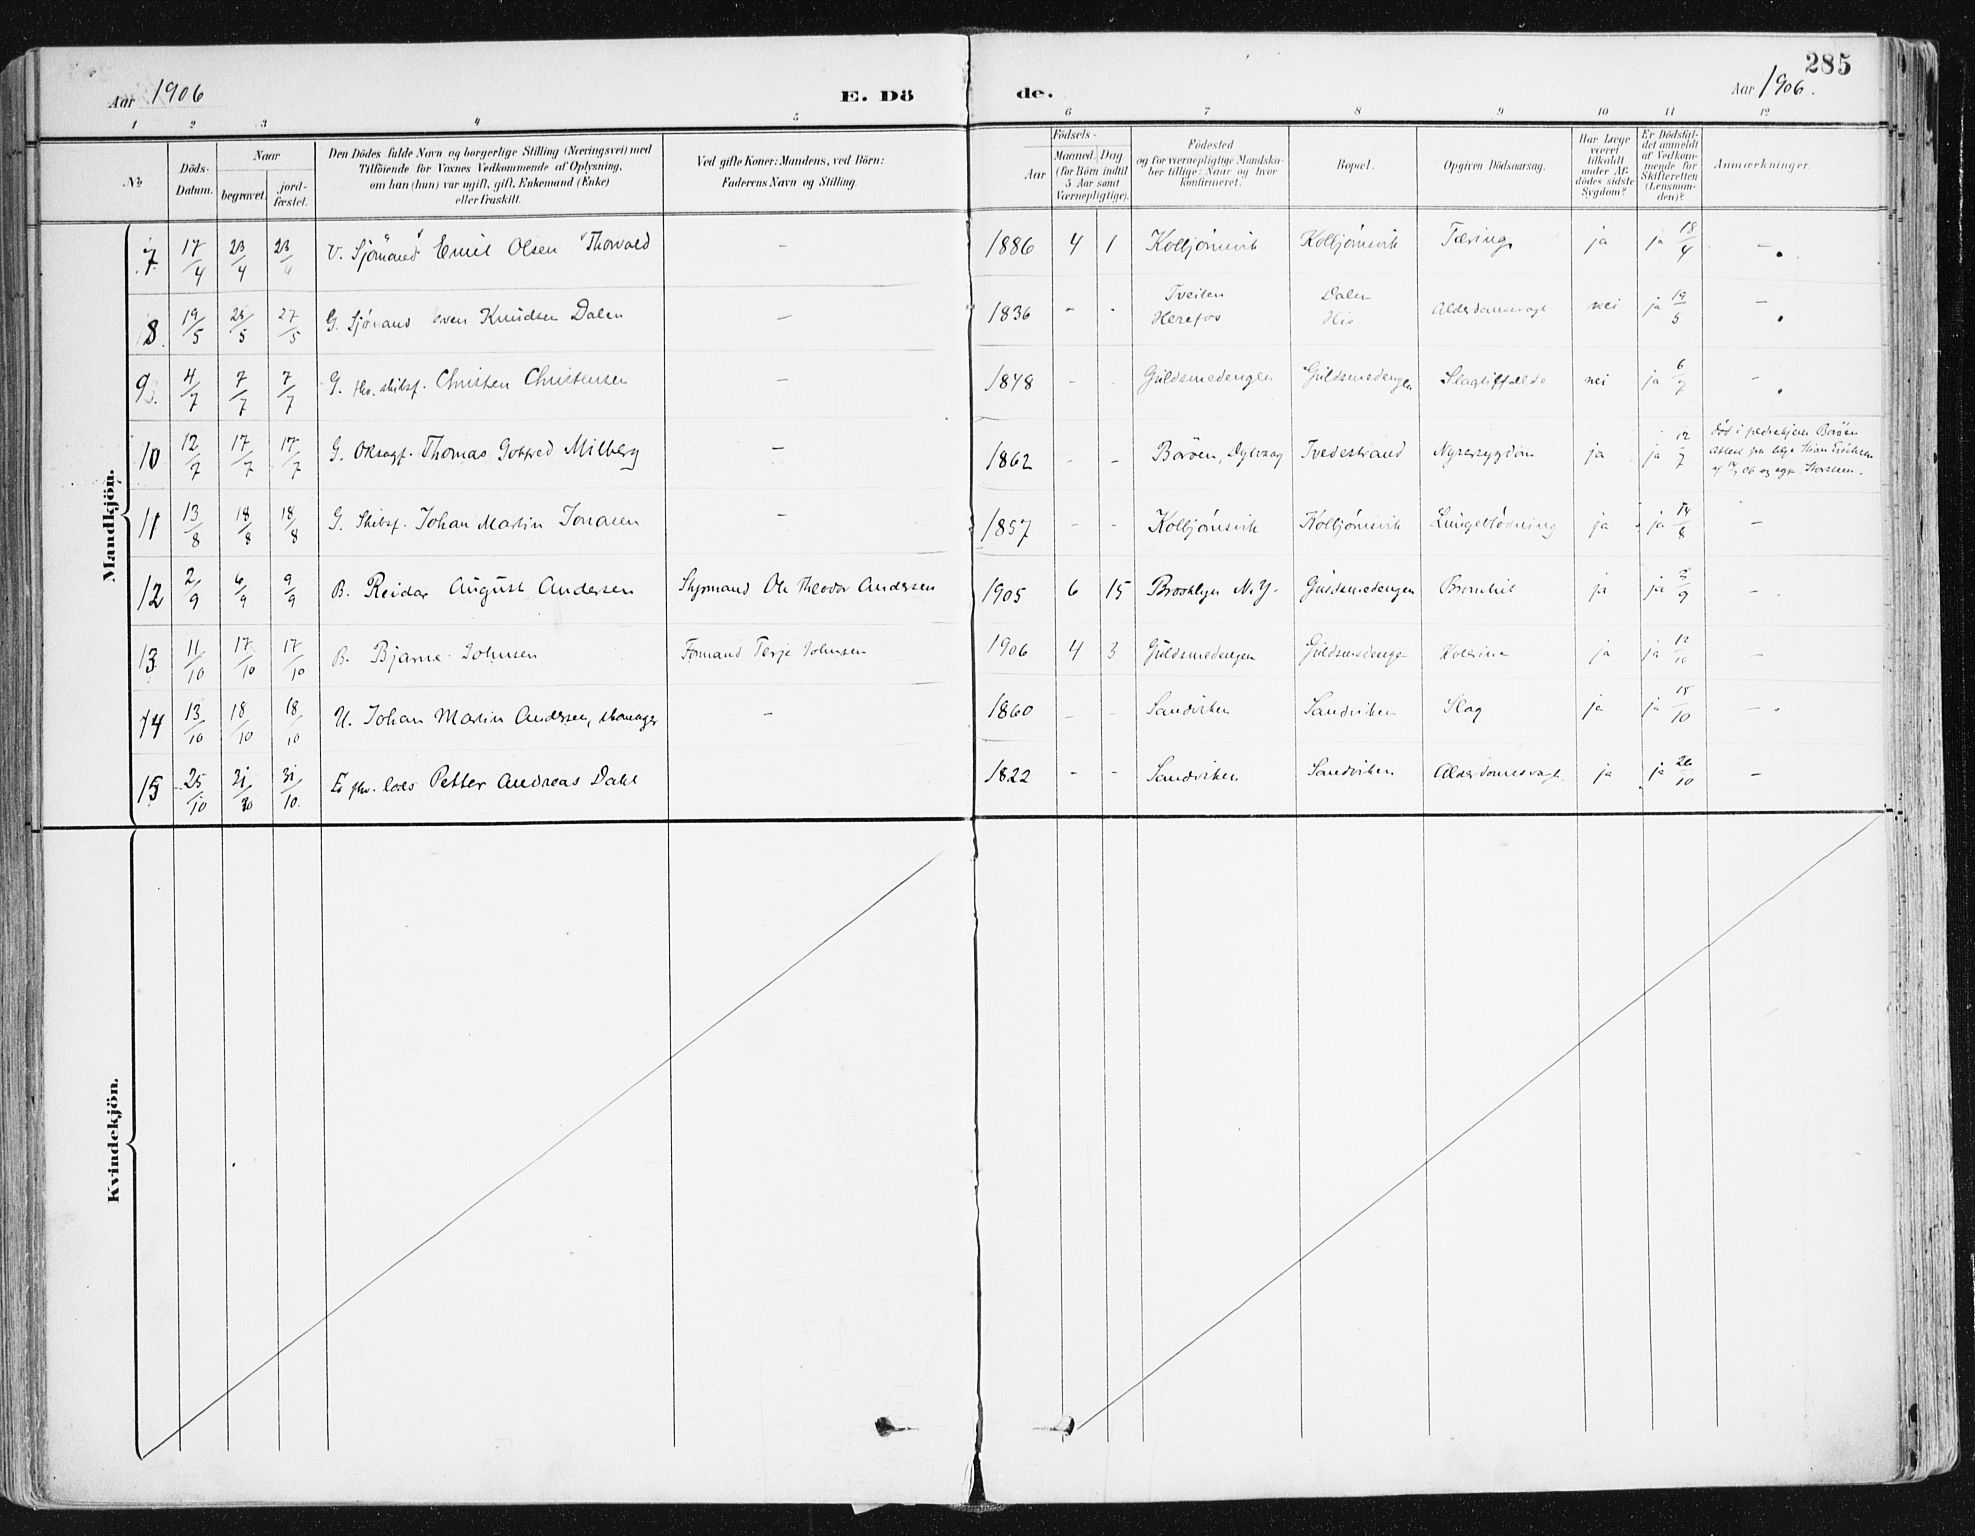 285
Aar 1906
E. Dö
de.
Aar 1906.
1 2 3 4 5 6 7 8 9 10 11 12
No
Döds-Datum.
Naar
begravet.
jord-fæstet.
Den Dödes fulde Navn og borgerlige Stilling (Næringsvei) med
Tilföiende for Voxnes Vedkommende af Oplysning,
om han (hun) var ugift, gift, Enkemand (Enke)
eller fraskilt.
Ved gifte Koner: Mandens, ved Börn:
Faderens Navn og Stilling.
Födsels-
Aar
Maaned. Dag
(for Börn indtil
5 Aar samt
Værnepligtige).
Födested
og for værnepligtige Mandska-
ber tillige: Naar og hvor
konfirmeret.
Bopæl.
Opgiven Dödsaarsag.
Har Læge
været
tilkaldt
under Af-
dödes sidste
Sygdom?
Er Dödsfal-
det anmeldt
af Vedkom-
mende for
Skifteretten
(Lensman-
den)?
Anmærkninger.
Mandkjön.
7 17/4 23/4 23/4 U. Sjömand Emil Olsen Thorvald - 1886 4 1 Kolbjörnsvik Kolbjörnsvik Tæring ja ja 18/4 -
8 19/5 26/5 27/5 G. Sjömand Knudsen Dalen - 1836 - - Tveiten Herefos Dalen His Alderdomssvagh nei ja 19/5 -
9 4/7 7/7 7/7 G. fhv. skibsf. Christen Christensen - 1848 - - Guldsmedengen Guldsmedengen Slagtilfælde nei ja 6/7 -
10 12/7 17/7 17/7 G. Thomas Gotfred Milberg - 1862 - - Boröen, Dybvaag Tvedestrand Nyresygdom ja ja 12/7
11 13/8 18/8 18/8 G. Skibsf. Johan Martin Jonasen - 1857 - - Kolbjörnsvik Kolbjörnsvik Lungeblödning ja ja 14/8 -
12 2/9 6/9 9/9 B. Reidar August Andersen Styrmand Ole Theodor Andersen 1905 6 15 Brooklyn N.Y. Guldsmedengen ja ja 3/9 -
13 11/10 17/10 17/10 B. Bjarne Johnsen Formand Terje Johnsen 1906 4 3 Guldsmedengen Guldsmedenge Kolerine ja ja 12/10 -
14 13/10 18/10 18/10 U. Johan Martin Andersen, skomager - 1860 - - Sandviken Sandviken Slag ja ja 15/10 -
15 25/10 31/10 31/10 E. fhv. lods Petter Andreas Dahl 1822 - - Sandviken Sandviken Alderdomssvagh. ja ja 26/10 -
Kvindekjön.